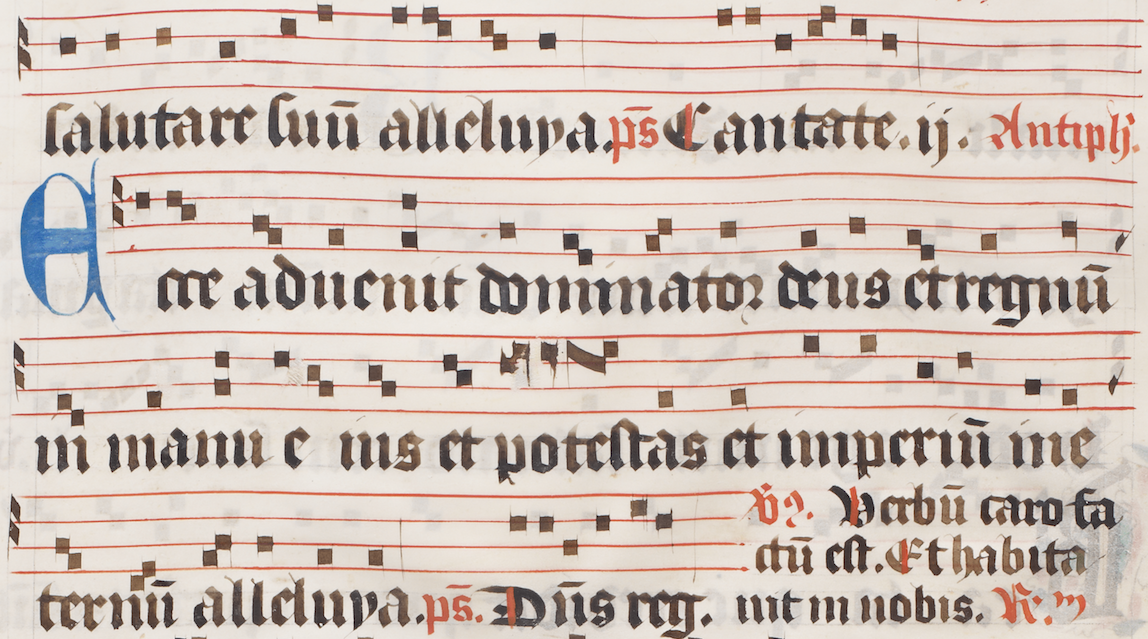 salutare suū alleluya. ps̄ Cantate. ij. Antiph'.
Ecce aduenit dominator deus et regnū
in manu eius et potestas et imperiū me
ternū alleluya. ps̄. Dn̄s reg.
V̄. Verbū caro fa
ctū est. Et habita
uit in nobis. R̄.